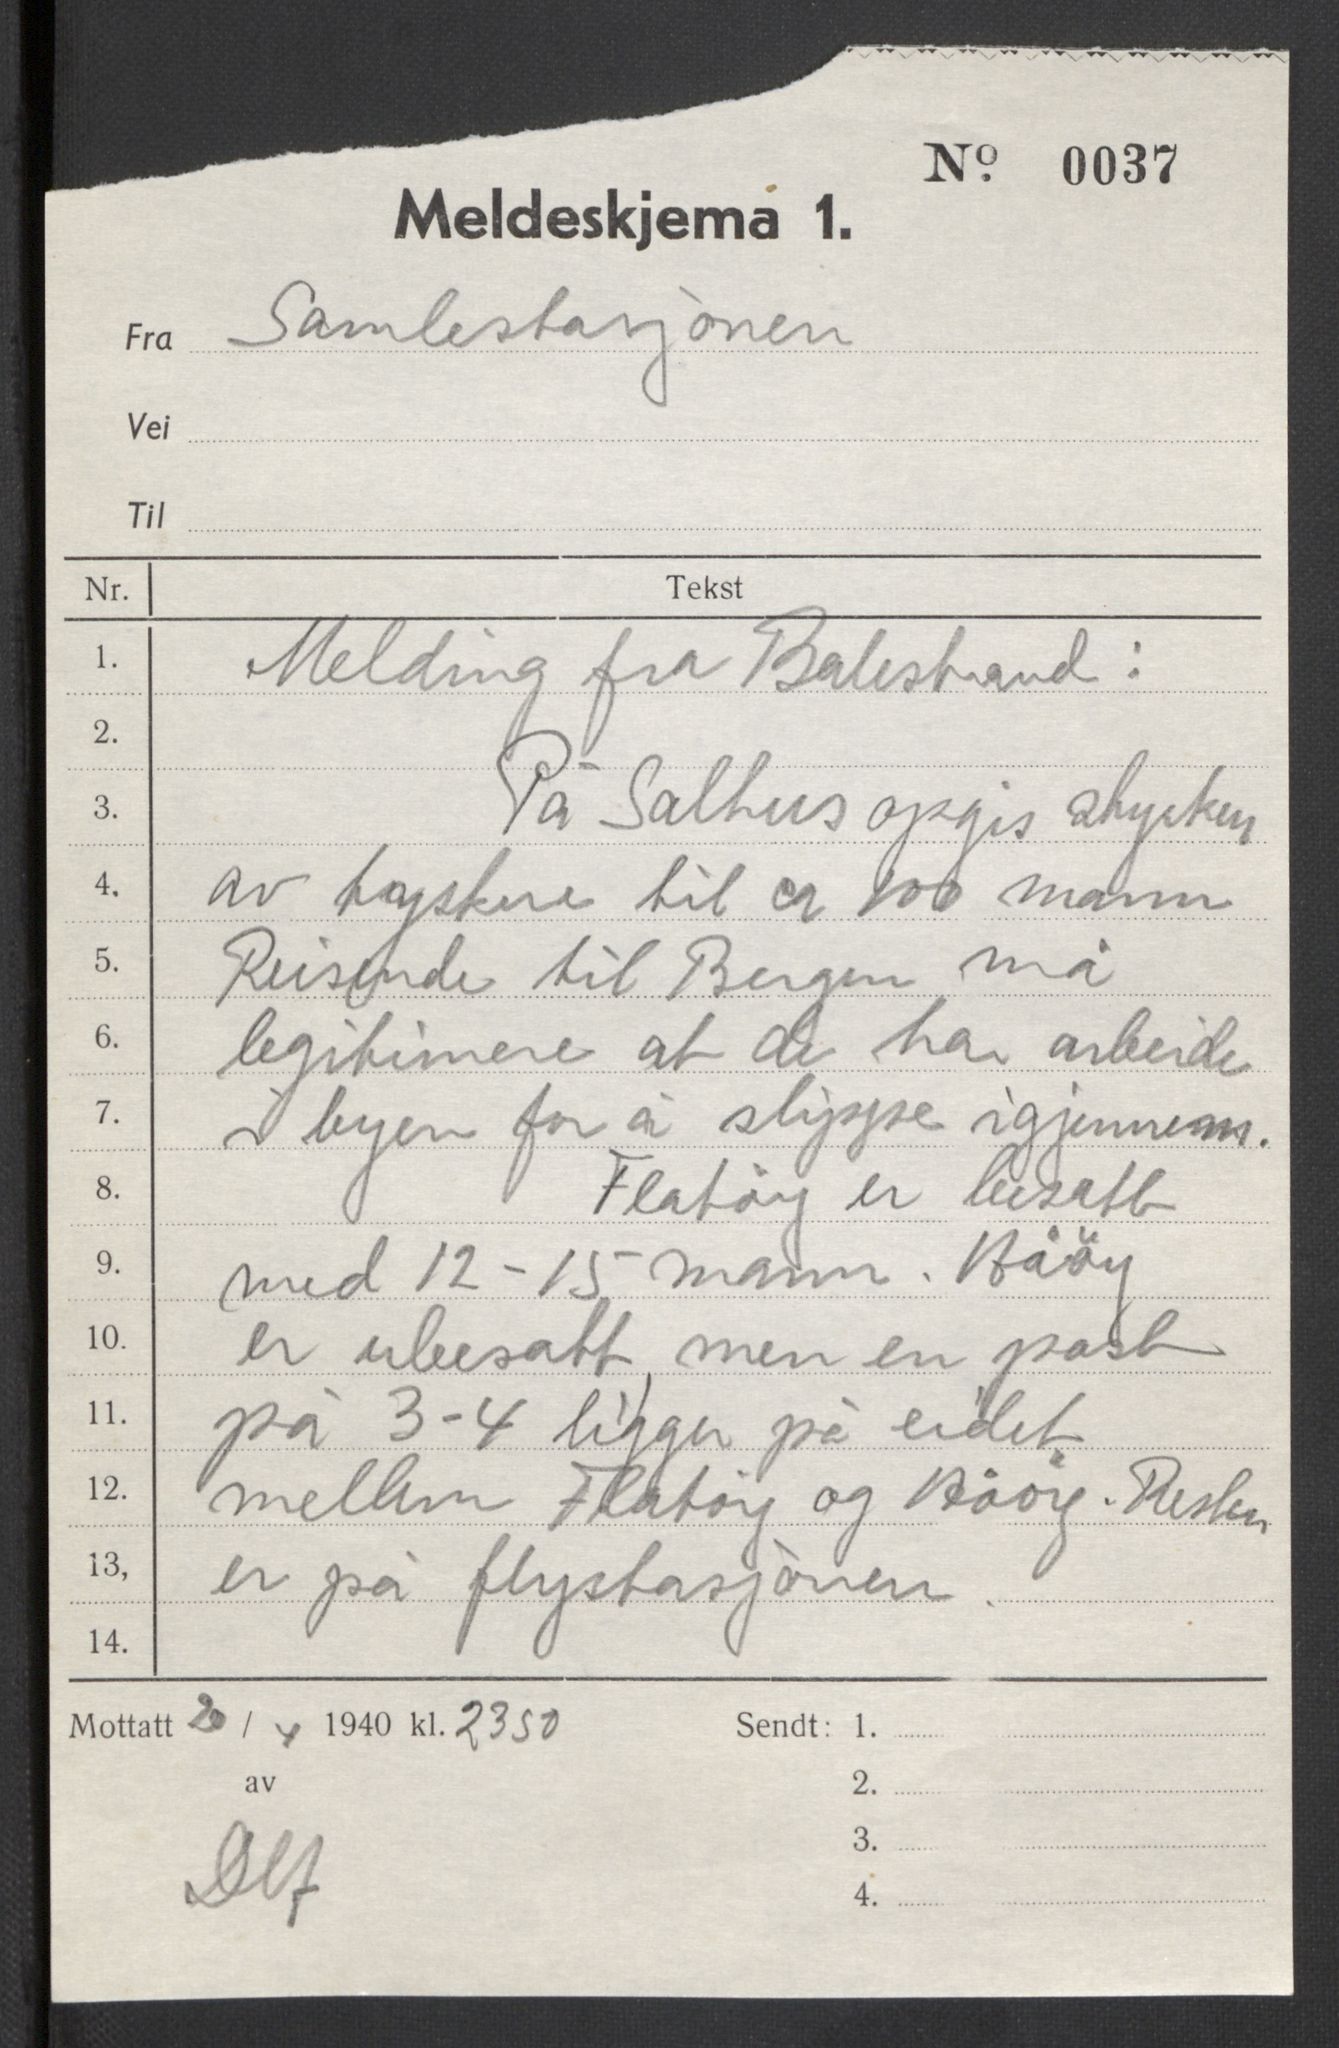 Nº. 0037
Meldeskjema 1.
Fra Samlestasjönen
Vei
Til
Nr. Tekst
1. Melding fra Balestrand:
2.
3. På Salhus opgis styrken
4. av tyskere til ca 100 mann
5. Reisende til Bergen må
6. legitimere at de har arbeide
7. i byen for å slippe igjennem.
8. Flatöy er besatt
9. med 12-15 mann. Håöy
10. er ubesatt, men en post
11. på 3-4 ligger på eidet
12. mellem Flatöy og Håöy. Resten
13, er på flystasjönen.
14.
Mottatt 20 / 4 1940 kl. 2350 Sendt: 1.
av 2.
3.
4.